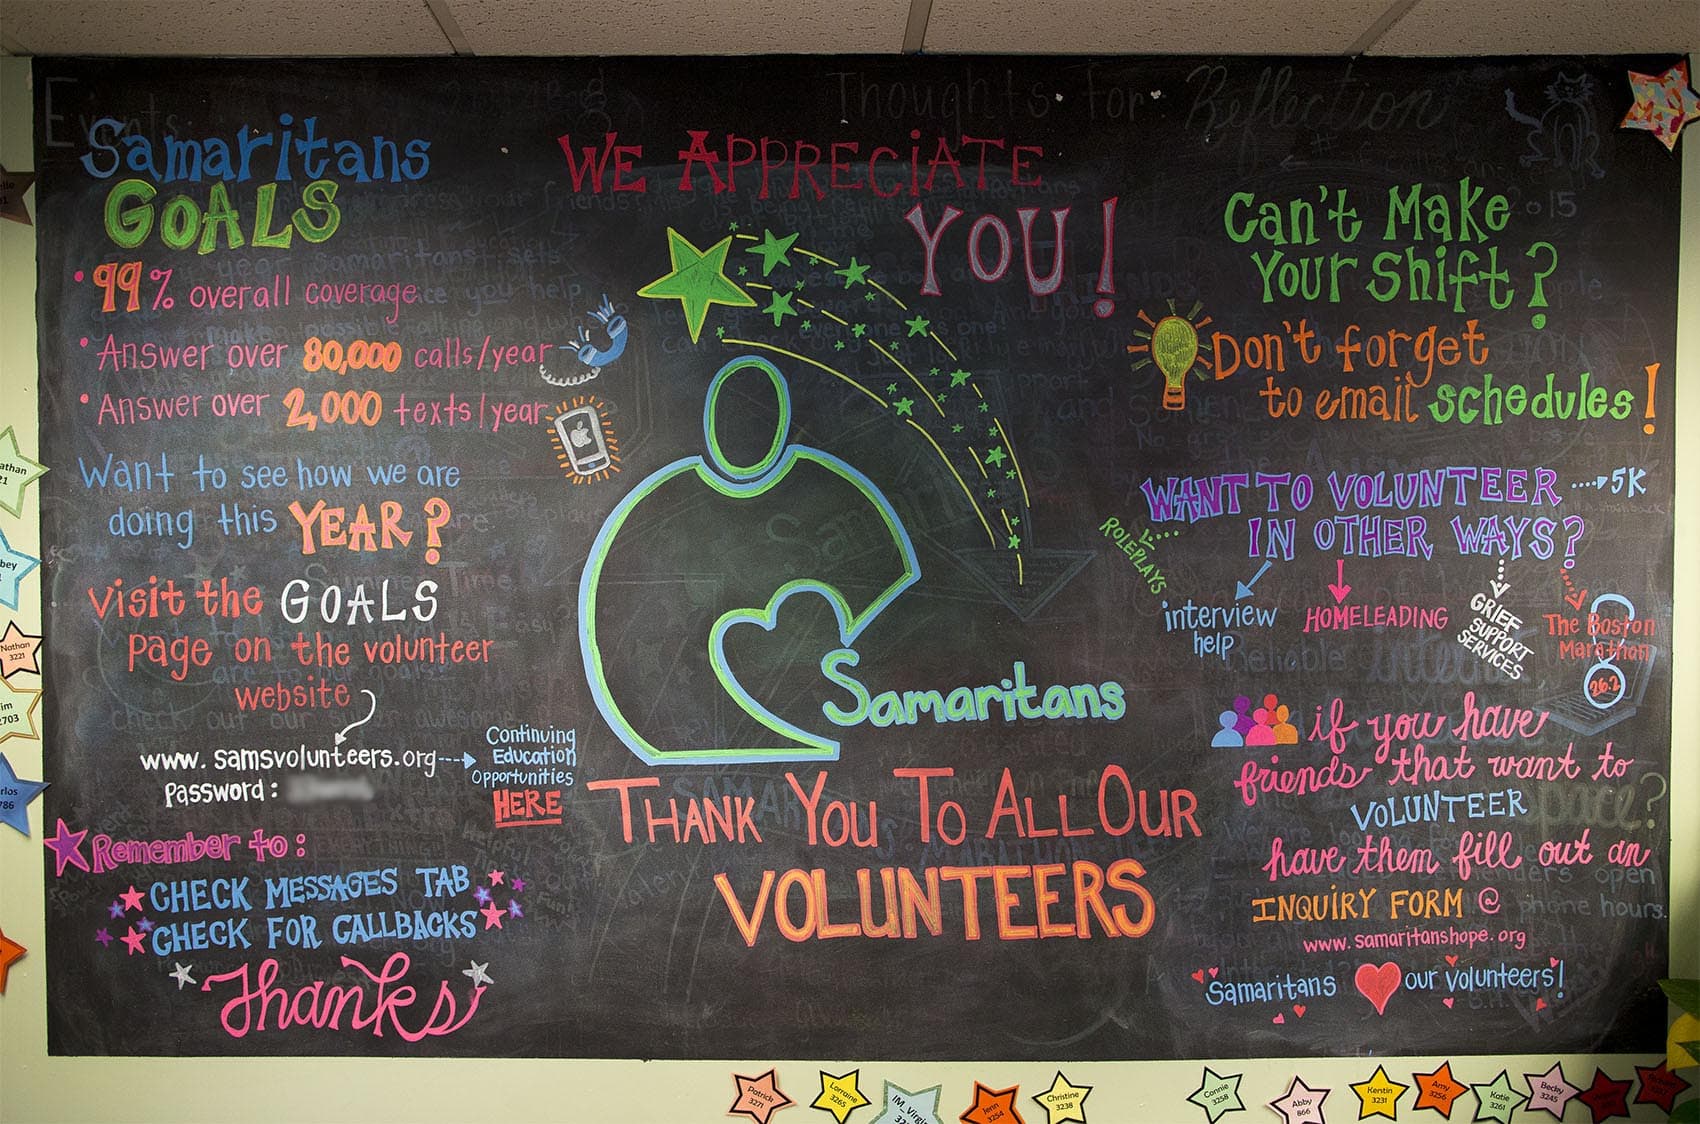 Events:
Thoughts for: Reflection
Samaritans
GOALS
• 99% overall coverage
• Answer over 80,000 calls/year
• Answer over 2,000 texts/year
Want to see how we are
doing this YEAR?
Visit the GOALS
page on the volunteer
website
www.samsvolunteers.org
Password:
Continuing
Education
Opportunities
HERE
Remember to:
CHECK MESSAGES TAB
CHECK FOR CALLBACKS
Thanks
WE APPRECIATE
YOU!
Samaritans
THANK YOU TO ALL OUR
VOLUNTEERS
Can't Make
Your Shift?
Don't forget
to email schedules!
WANT TO VOLUNTEER
IN OTHER WAYS?
5K
ROLEPLAYS
interview
help
HOMELEADING
GRIEF
SUPPORT
SERVICES
The Boston
Marathon
26.2
if you have
friends that want to
VOLUNTEER
have them fill out an
INQUIRY FORM @
www.samaritanshope.org
Samaritans our volunteers!
Nathan
3221
Patrick
3271
Lorraine
3265
Jenn
3254
Christine
3238
Connie
3258
Abby
866
Kentin
3231
Amy
3256
Katie
3261
Becky
3245